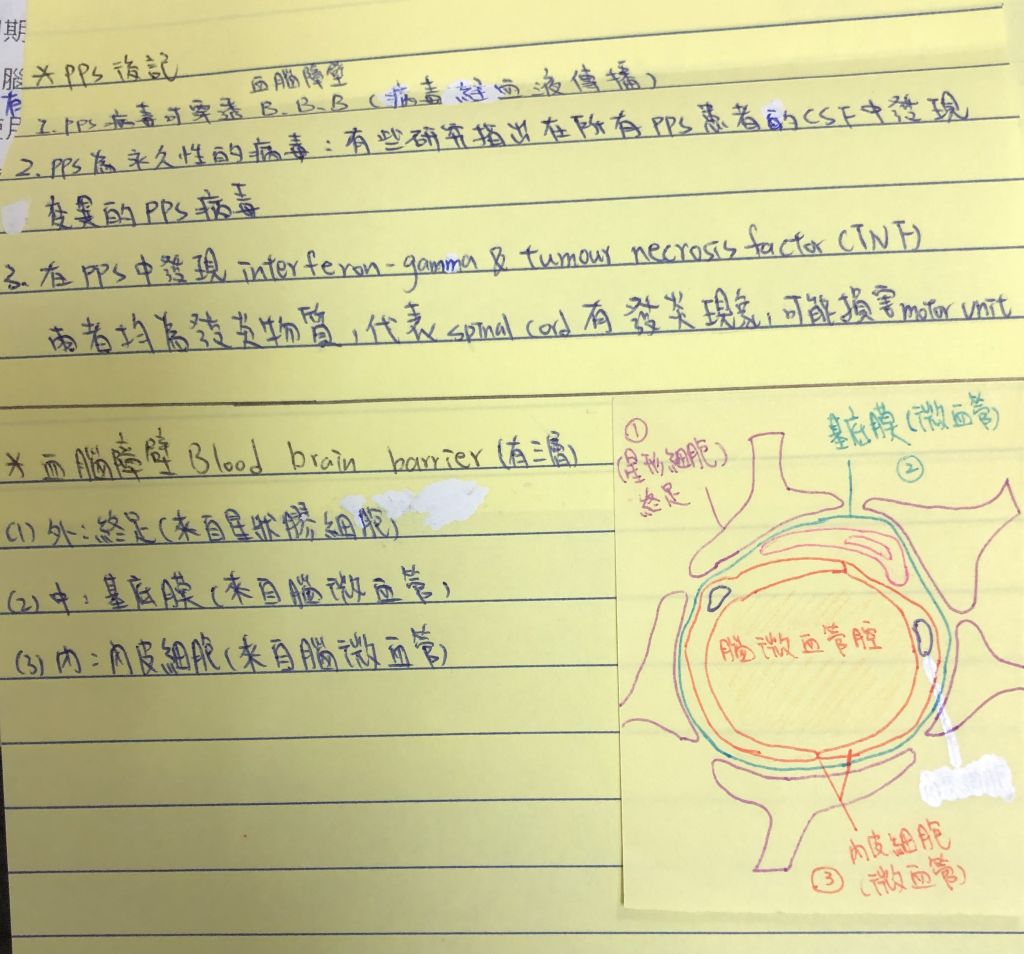 期
腦
*PPS後記
血腦障壁
1. PPS病毒可穿透B.B.B(病毒經血液傳播)
2. PPS為永久性的病毒:有些研究指出在所有PPS患者的CSF中發現
變異的PPS病毒
3. 在PPS中發現interferon-gamma & tumour necrosis factor (TNF)
兩者均為發炎物質,代表spinal cord有發炎現象,可能損害motor unit
*血腦障壁 Blood brain barrier (有三層)
(1)外:終足(來自星狀膠細胞)
(2)中:基底膜(來自腦微血管)
(3)內:內皮細胞(來自腦微血管)
①
(星形細胞)
終足
基底膜(微血管)
②
腦微血管腔
內皮細胞
③(微血管)